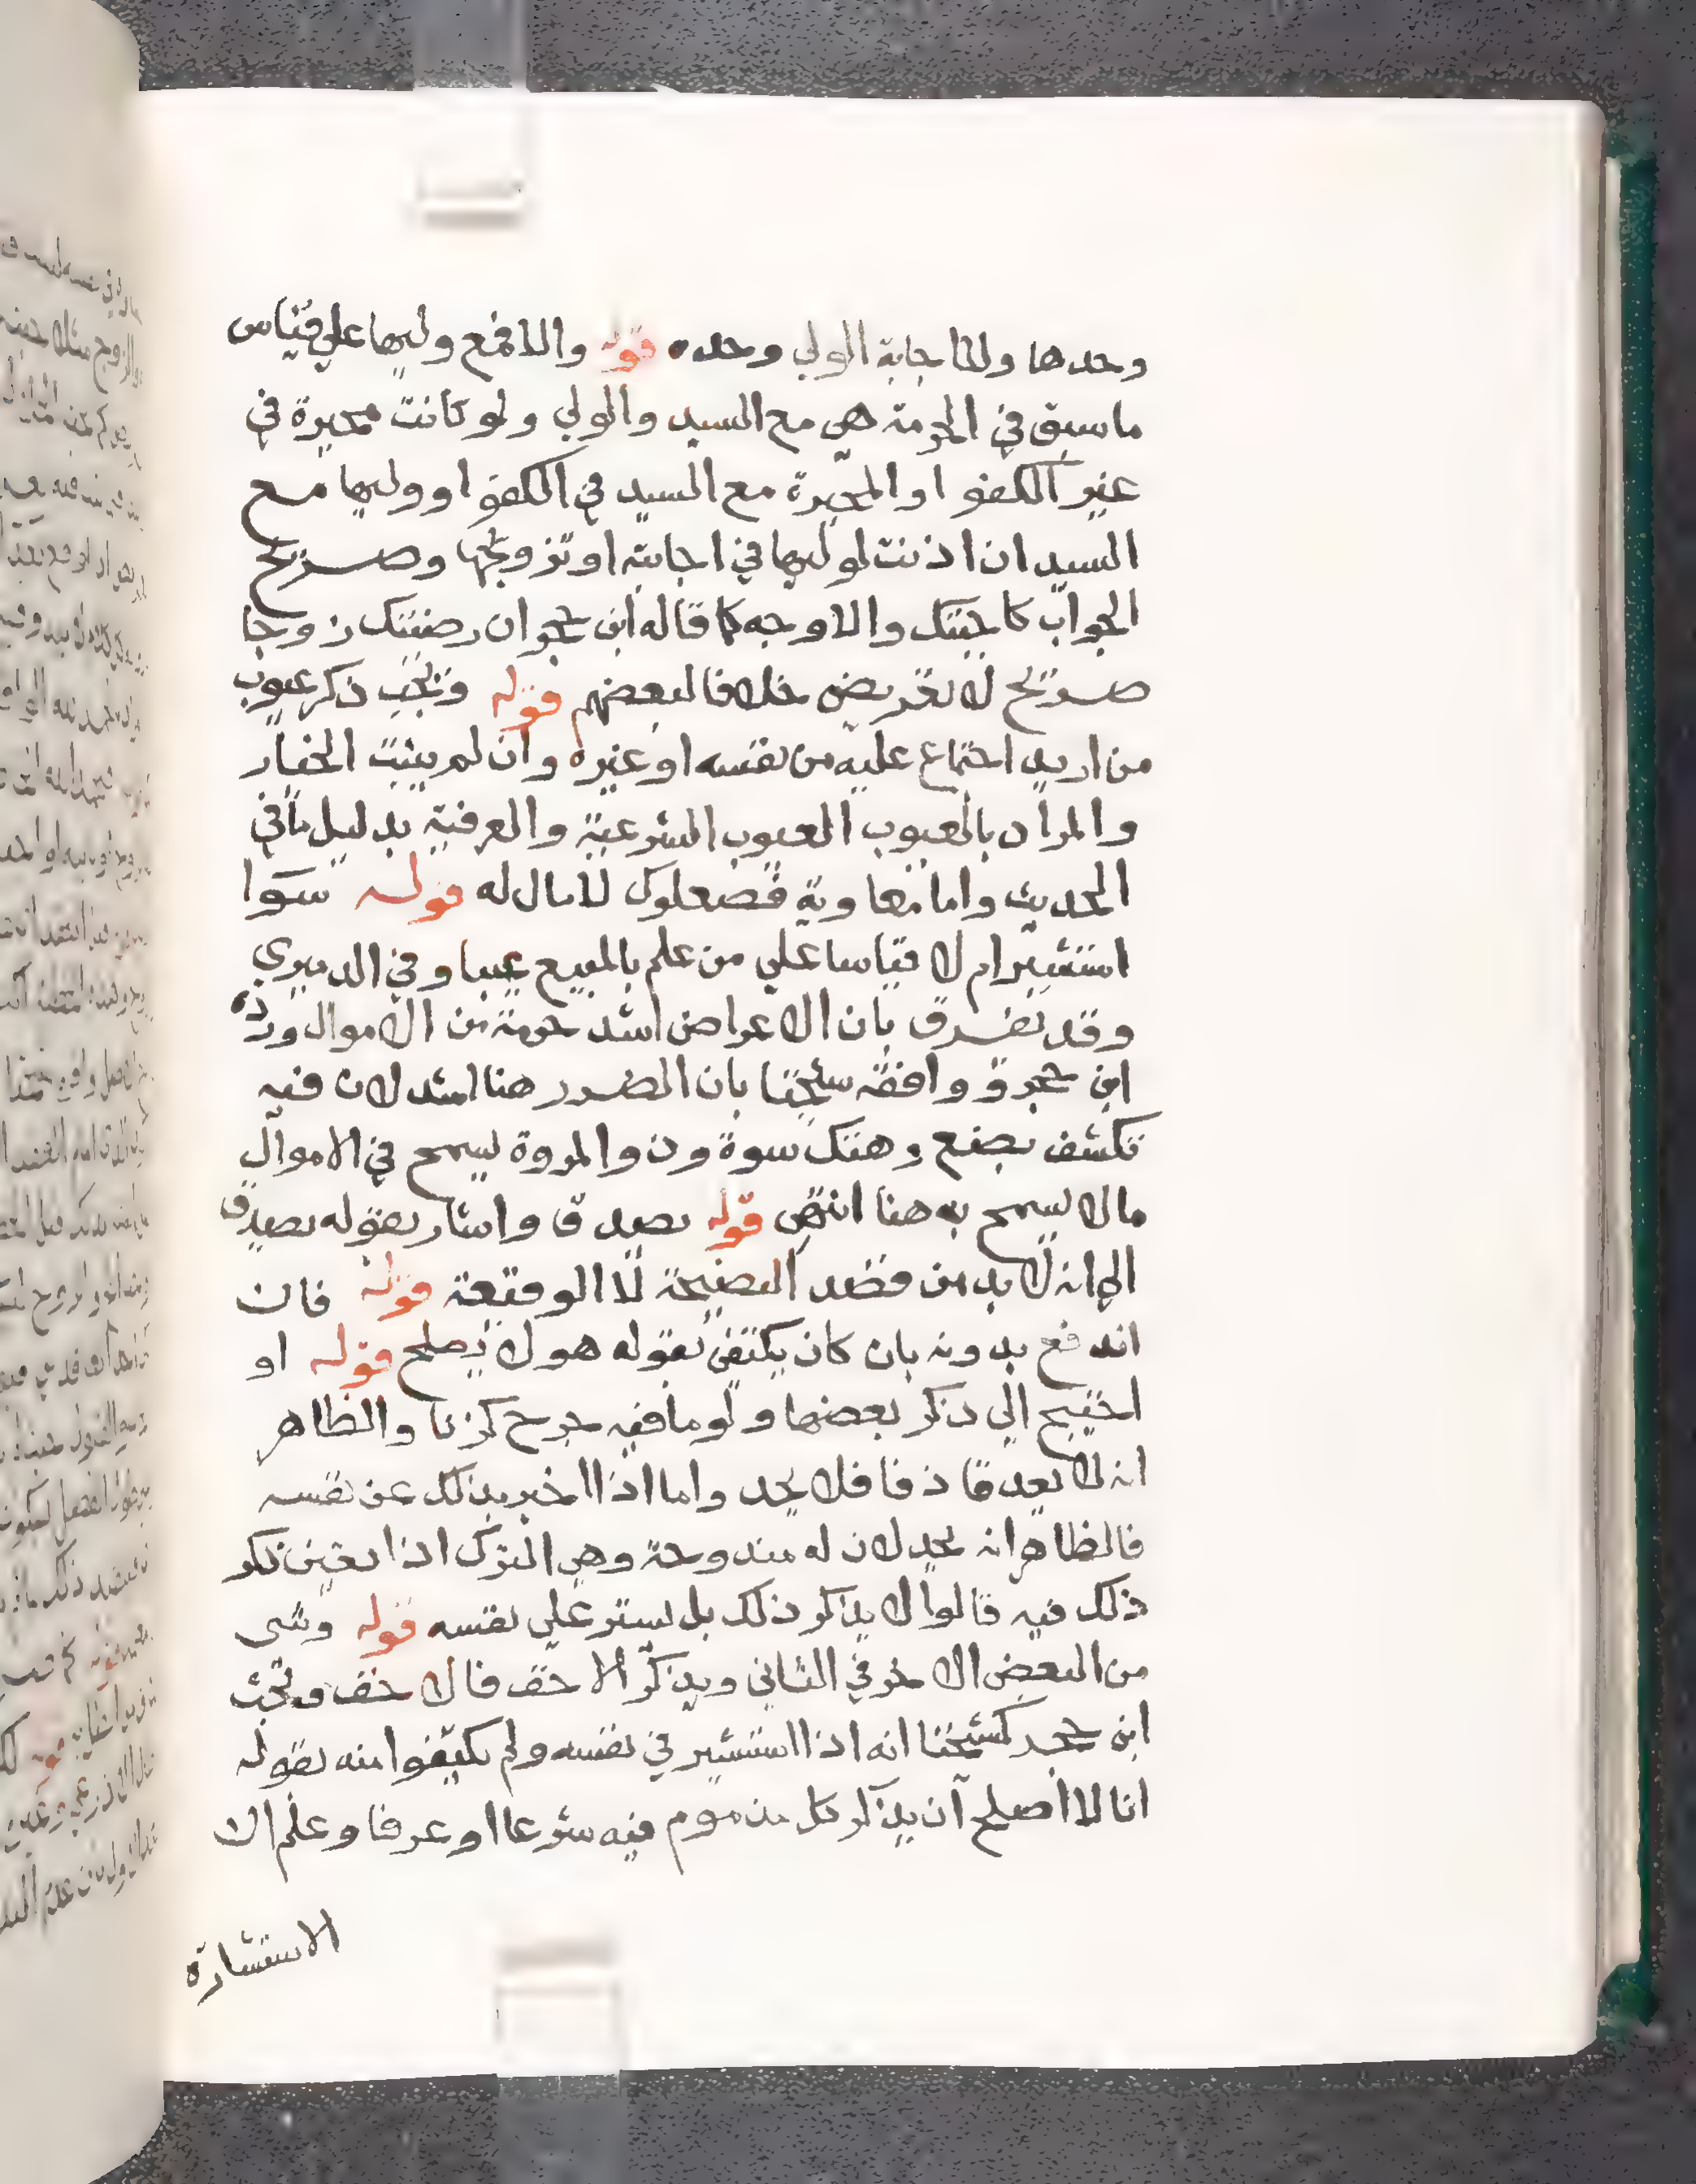 وحدها ولا اجابة الولي وحده قوله والا فمع وليها علي قياس
ما سبق في المحرمة هي مع السيد والولي ولو كانت مجبرة في
غير الكفو او المجبرة مع السيد في الكفو او وليها مع
السيد ان اذنت لوليها في اجابته او تزويجها وصريح
الجواب كاجبتك والاوجه كما قاله ابن حجر ان رضيتك زوجا
صريح لا تعريض خلافا لبعضهم قوله ويجب ذكر عيوب
من اريد اجتماع عليه من نفسه او غيره وان لم يثبت الخيار
والمراد بالعيوب العيوب الشرعية والعرفية بدليل ما في
الحديث واما معاوية فصعلوك لا مال له قوله سوا
استشير ام لا قياسا علي من علم بالمبيع عيبا وفي الدميري
وقد يفرق بان الاعراض اشد حرمة من الاموال ورده
ابن حجر ووافقه شيخنا بان الضرر هنا اشد لان فيه
تكشف بضع وهتك سوة وذو المروة يسمح في الاموال
ما لا يسمح به هنا انتهي قوله بصدق واشار بقوله بصدق
الي انه لا بد من قصد النصيحة لا الوقيعة قوله فان
اندفع بدونه بان كان يكتفي بقوله هو لا يصلح قوله او
احتيج الي ذكر بعضها ولو ما فيه جرح كزنا والظاهر
انه لا يعد قاذفا فلا يحد واما اذا اخبر بذلك عن نفسه
فالظاهر انه يحد لان له مندوحة وهي الترك اذا تعين ذكر
ذلك فيه قالوا لا يذكر ذلك بل يستر علي نفسه قوله وشي
من البعض الاخر في الثاني ويذكر الاخف فالاخف وبحث
ابن حجر كشيخنا انه اذا استشير في نفسه ولم يكتفوا منه بقوله
انا لا اصلح ان يذكر كل مذموم فيه شرعا او عرفا وعلم ان
الاستشارة